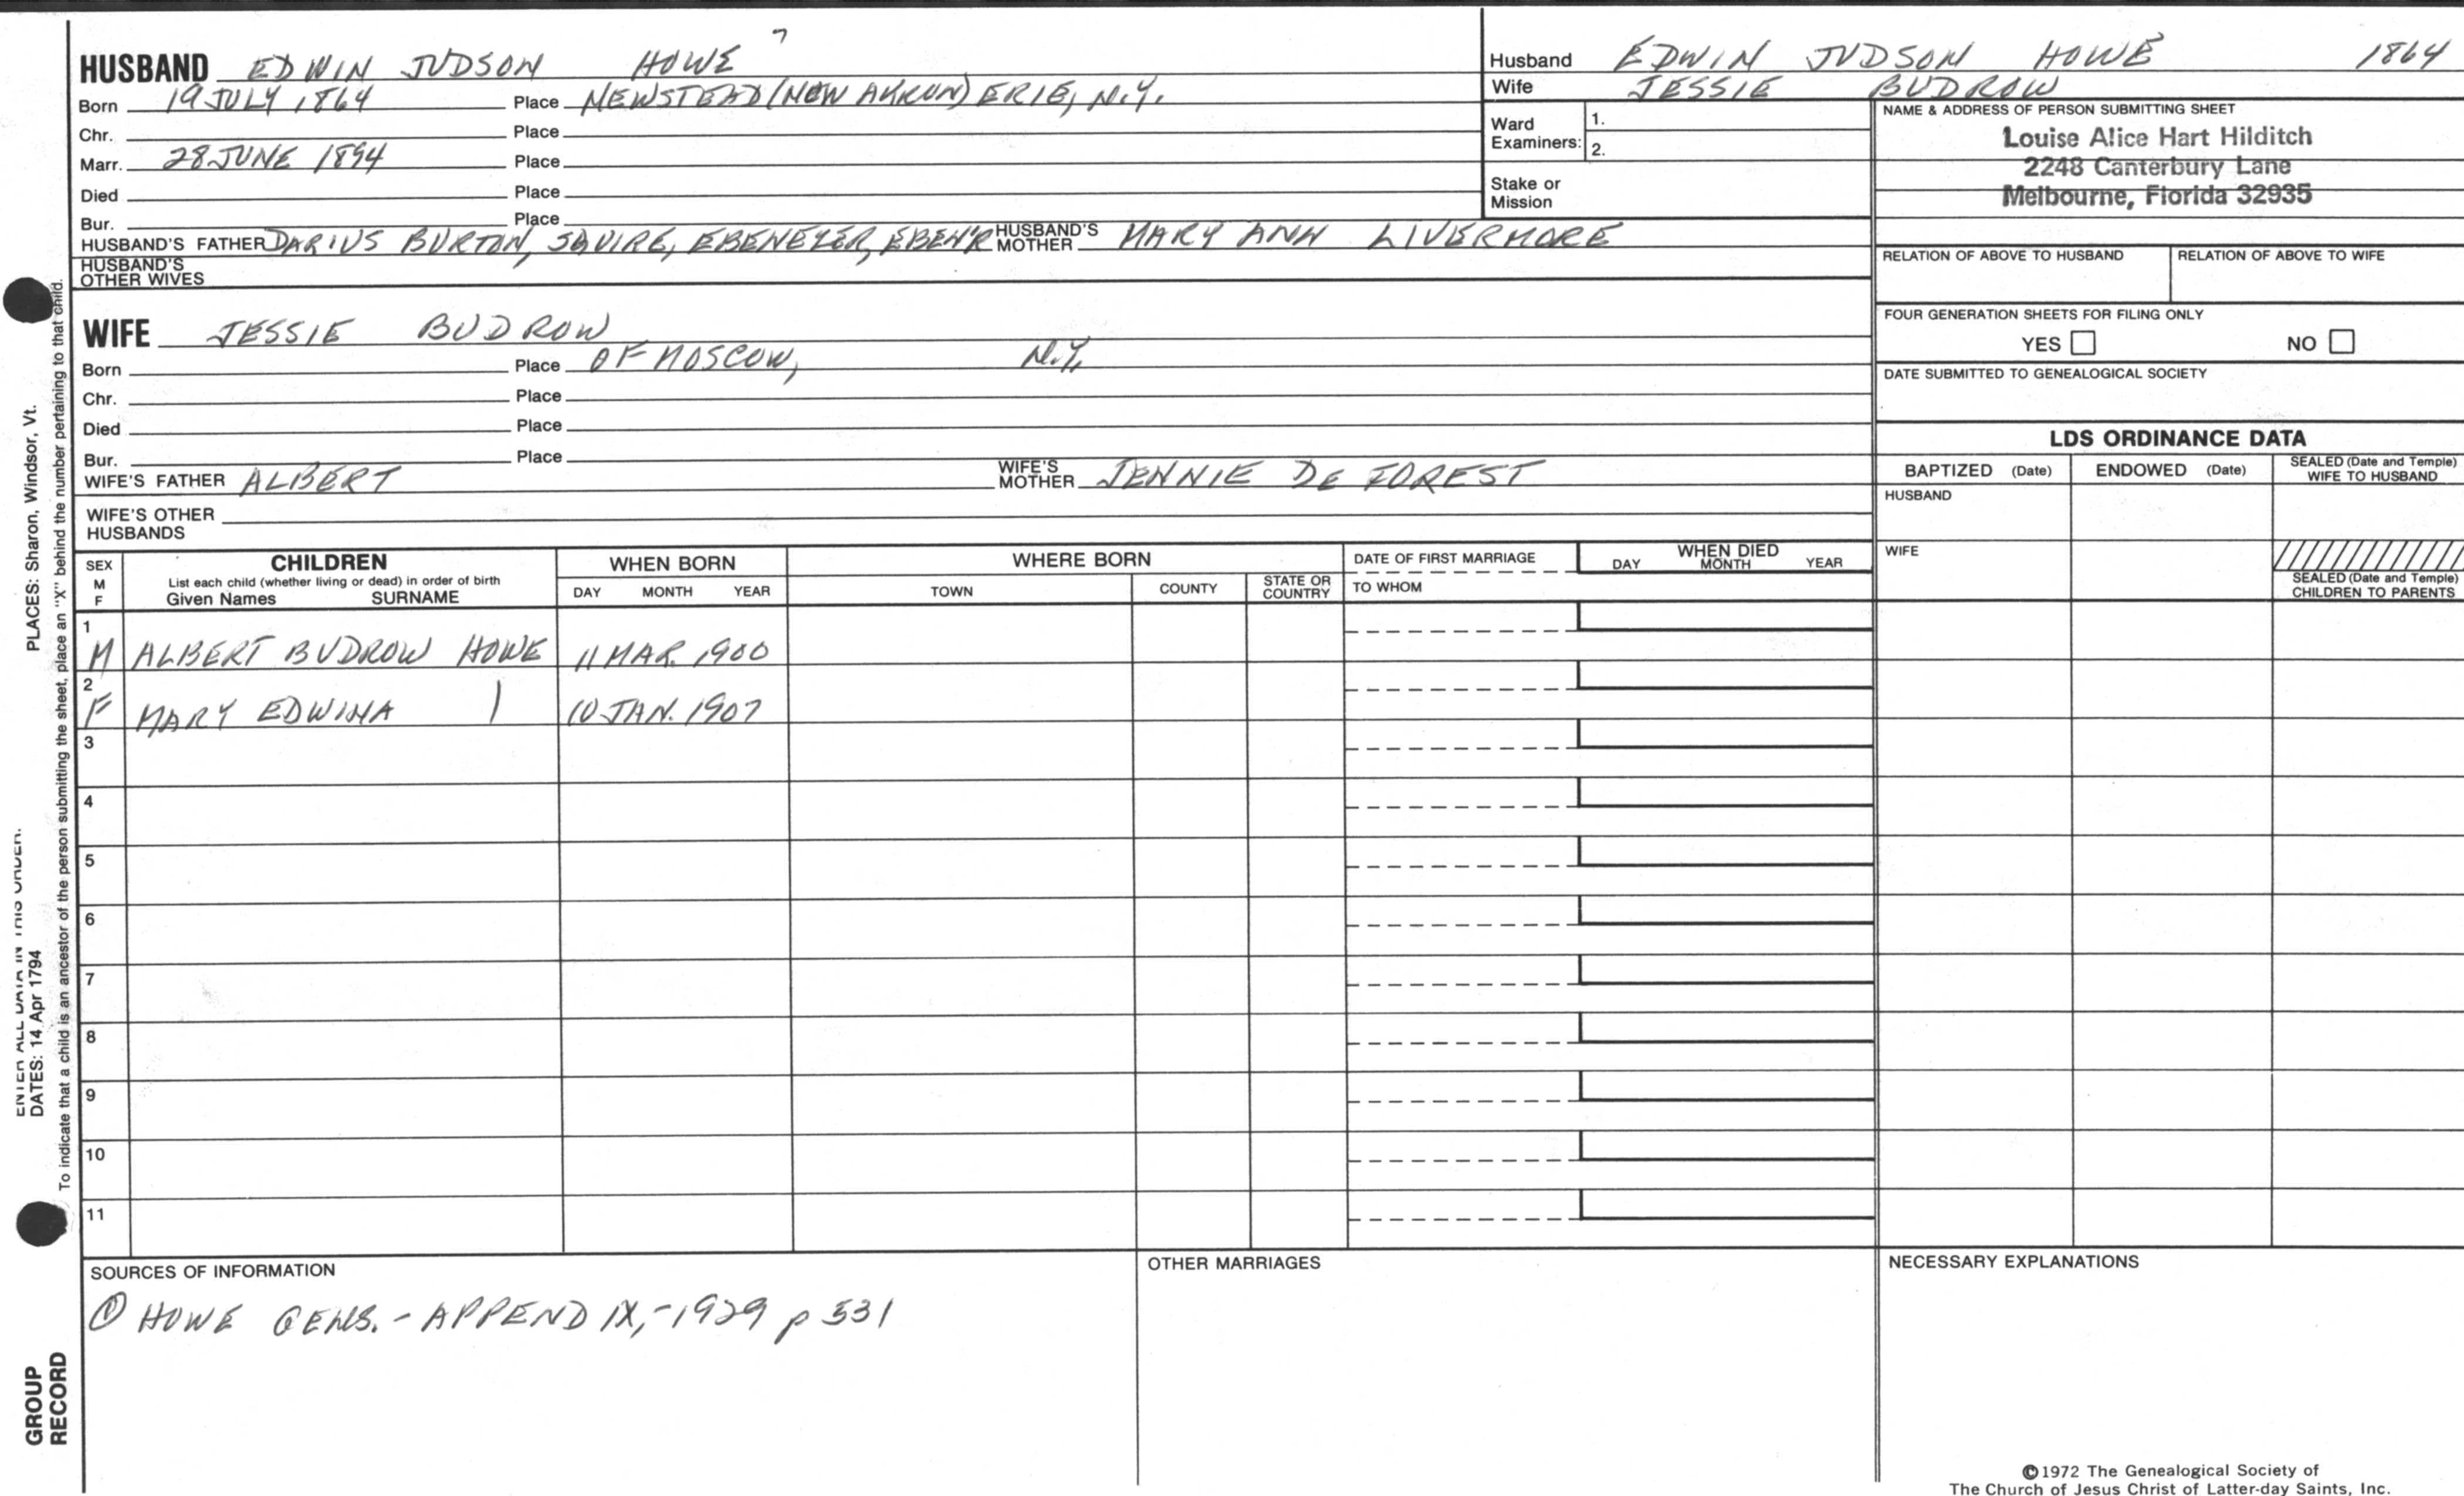 HUSBAND EDWIN JUDSON HOWE 7
Born 19 JULY 1864 Place NEWSTEAD (NOW AKRON) ERIE, N.Y.
Chr. Place
Marr. 28 JUNE 1894 Place
Died Place
Bur. Place
HUSBAND'S FATHER DARIUS BURTON, SQUIRE, EBENEZER, EBEN'R HUSBAND'S MOTHER MARY ANN LIVERMORE
HUSBAND'S OTHER WIVES
Husband EDWIN JUDSON HOWE 1864
Wife JESSIE BUDROW
Ward Examiners: 1.
2.
Stake or Mission
NAME & ADDRESS OF PERSON SUBMITTING SHEET
Louise Alice Hart Hilditch
2248 Canterbury Lane
Melbourne, Florida 32935
RELATION OF ABOVE TO HUSBAND RELATION OF ABOVE TO WIFE
FOUR GENERATION SHEETS FOR FILING ONLY
YES NO
DATE SUBMITTED TO GENEALOGICAL SOCIETY
WIFE JESSIE BUDROW
Born Place OF MOSCOW, N.Y.
Chr. Place
Died Place
Bur. Place
WIFE'S FATHER ALBERT WIFE'S MOTHER JENNIE DE FOREST
WIFE'S OTHER HUSBANDS
LDS ORDINANCE DATA
BAPTIZED (Date) ENDOWED (Date) SEALED (Date and Temple) WIFE TO HUSBAND
HUSBAND
WIFE
SEALED (Date and Temple) CHILDREN TO PARENTS
SEX M F
CHILDREN
List each child (whether living or dead) in order of birth
Given Names SURNAME
WHEN BORN
DAY MONTH YEAR
WHERE BORN
TOWN COUNTY STATE OR COUNTRY
DATE OF FIRST MARRIAGE
TO WHOM
WHEN DIED
DAY MONTH YEAR
1 M ALBERT BUDROW HOWE 11 MAR. 1900
2 F MARY EDWINA | 10 JAN. 1907
3
4
5
6
7
8
9
10
11
SOURCES OF INFORMATION
① HOWE GENS. - APPENDIX, - 1929 p 531
OTHER MARRIAGES
NECESSARY EXPLANATIONS
©1972 The Genealogical Society of
The Church of Jesus Christ of Latter-day Saints, Inc.
ENTER ALL DATA IN THIS ORDER.
DATES: 14 Apr 1794
PLACES: Sharon, Windsor, Vt.
To indicate that a child is an ancestor of the person submitting the sheet, place an "X" behind the number pertaining to that child.
GROUP
RECORD